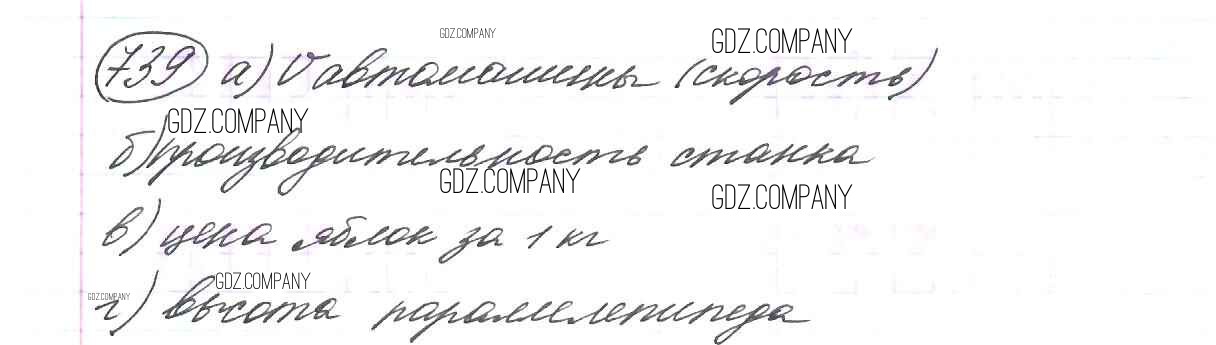 GDZ.COMPANY
739 а) V автомашины (скорость) GDZ.COMPANY
GDZ.COMPANY
б) производительность станка
GDZ.COMPANY GDZ.COMPANY
в) цена яблок за 1 кг
GDZ.COMPANY
GDZ.COMPANY
г) высота параллелепипеда